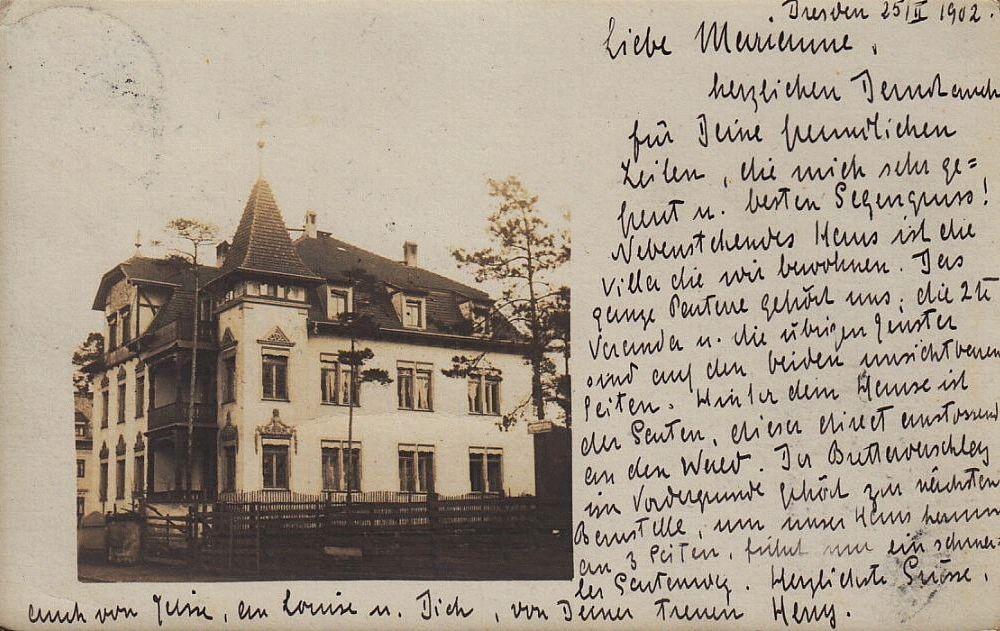 Dresden 25/II 1902.
Liebe Marianne,
herzlichen Dank auch
für Deine freundlichen
Zeilen, die mich sehr ge=
freut u. besten Gegengruss!
Nebenstehendes Haus ist die
Villa die wir bewohnen. Das
ganze Parterre gehört uns; die
Veranda u. die übrigen Fenster
sind auf den beiden unsichtbaren
Seiten. Hinter dem Hause ist
der Garten, dieser direct anstossend
an den Wald. Der Bretterverschlag
im Vordergrunde gehört zur nächsten
Baustelle, um unser Haus herum
an 3 Seiten, führt nur ein schma=
ler Gartenweg. Herzlichste Grüsse,
auch von, an Louise u. Dich, von Deiner treuen